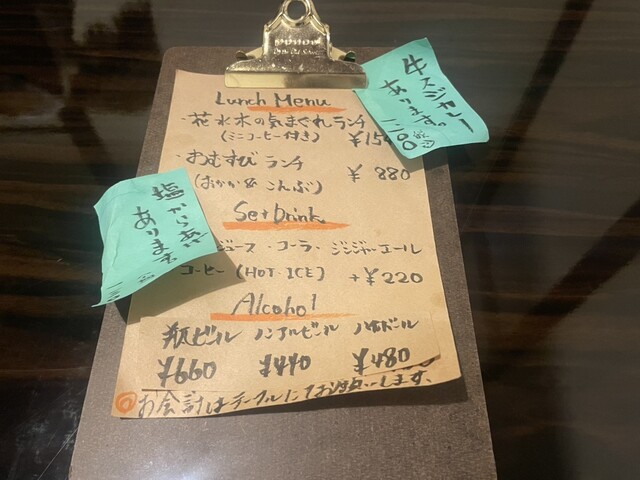 Lunch Menu
・花水木の気まぐれランチ
(ミニコーヒー付き) ¥15
・おむすび ランチ
(おかか& こんぶ) ¥ 880
Set Drink
ジュース・コーラ・ジンジャーエール
コーヒー (HOT・ICE) +¥220
Alcohol
瓶ビール ノンアルビール ハイボール
¥660 ¥440 ¥480
お会計はテーブルにてお願いします。
牛スジカレー
あります。
塩から揚
あります